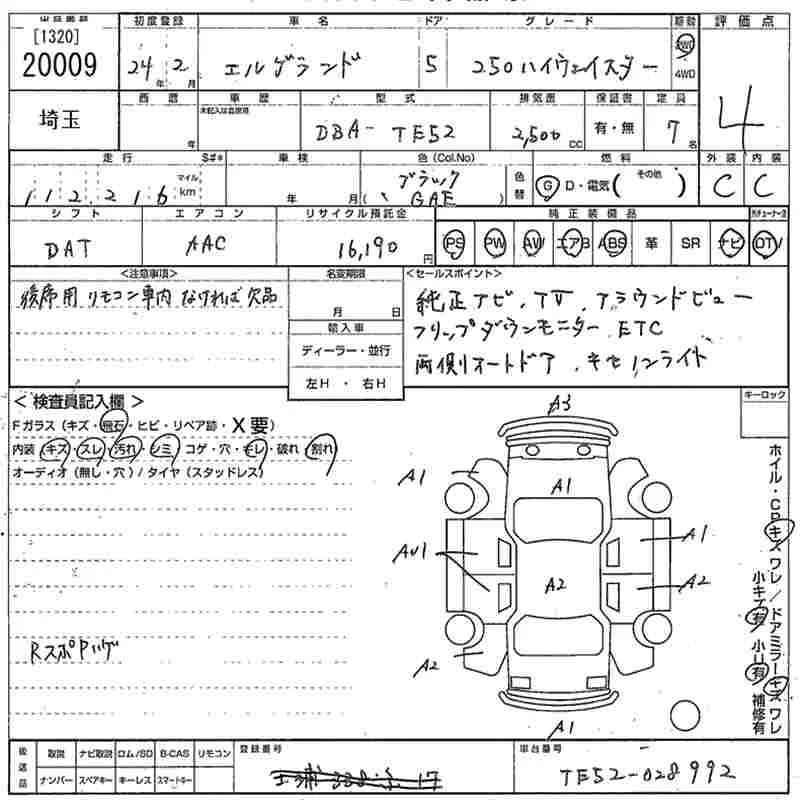 出品番号 初度登録 車名 ドア グレード 駆動 評価点
[1320]
20009 24年 2月 エルグランド 5 250ハイウェイスター 2WD 4WD 4
埼玉 西暦 年 車歴 未記入は自家用 型式 DBA-TE52 排気量 2,500cc 保証書 有・無 定員 7名
走行 S#* 車検 色(Col.No) 燃料 外装 内装
112,216 マイル km 年 月 ブラック (GAE) 色替 G D・電気(その他) C C
シフト エアコン リサイクル預託金 純正装備品
DAT AAC 16,190円 PS PW AW エアB ABS 革 SR ナビ TV
<注意事項> 名変期限 <セールスポイント>
後席用 リモコン車内 なければ欠品 月 日 純正ナビ、TV、アラウンドビュー
輸入車 フリップダウンモニター ETC
ディーラー・並行 両側オートドア、キセノンライト
左H・右H
< 検査員記入欄 > キーロック
Fガラス(キズ・飛石・ヒビ・リペア跡・X要)
内装 キズ・スレ・汚れ・シミ・コゲ・穴・モレ・破れ・割れ
オーディオ(無し・穴)/タイヤ(スタッドレス)
A3
A1 A1
AU1 A1
A2 A2
RスポPハゲ
A2
A1
ホイル・CPキズワレ/ドアミラーキズワレ
小キズ有 小U有 補修有
後送品 取説 ナビ取説 ロム/SD B-CAS リモコン 登録番号 車台番号
ナンバー スペアキー キーレス スマートキー TE52-028992